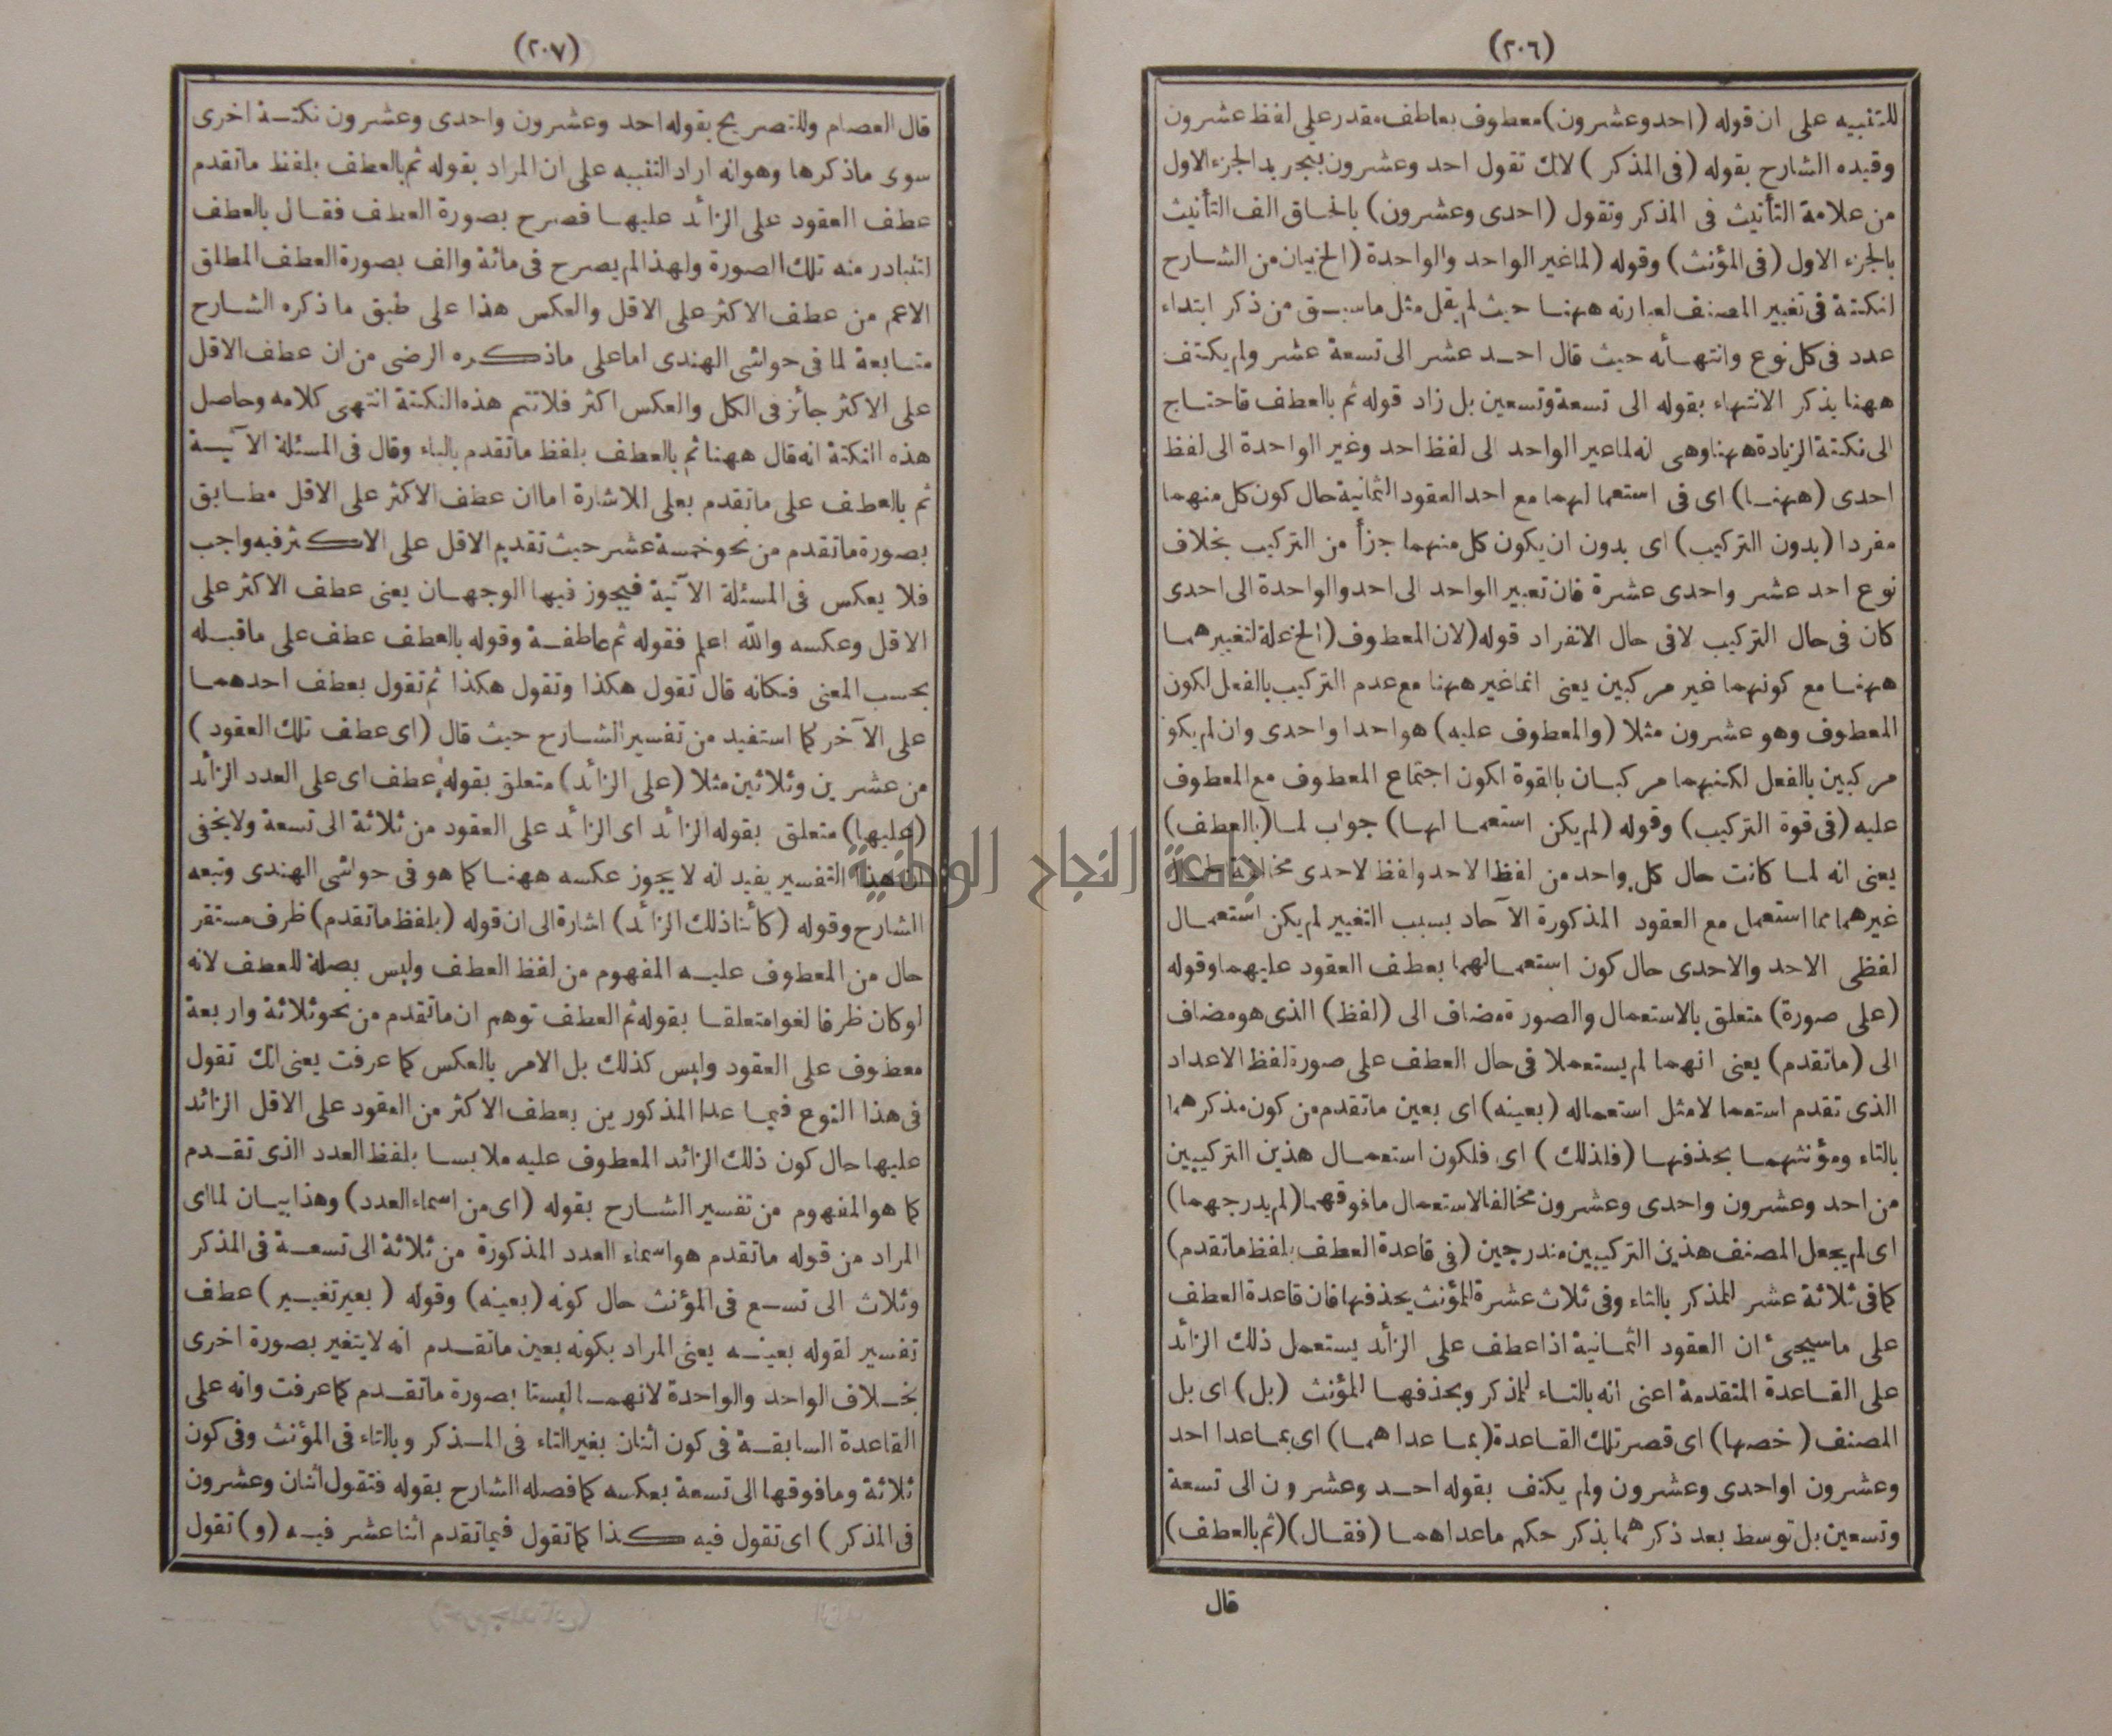 (٢٠٦)
للتنبيه على ان قوله (احد وعشرون) معطوف بعاطف مقدر على لفظ عشرون
وقيده الشارح بقوله (فى المذكر) لانك تقول احد وعشرون بتجريد الجزء الاول
من علامة التأنيث فى المذكر وتقول (احدى وعشرون) بالحاق الف التأنيث
بالجزء الاول (فى المؤنث) وقوله (لما غير الواحد والواحدة (الخ بيان من الشارح
لنكتة فى تغيير المصنف لعبارته ههنا حيث لم يقل مثل ما سبق من ذكر ابتداء
عدد فى كل نوع وانتهائه حيث قال احد عشر الى تسعة عشر ولم يكتف
ههنا بذكر الانتهاء بقوله الى تسعة وتسعين بل زاد قوله ثم بالعطف فاحتاج
الى نكتة الزيادة ههنا وهى انه لما غير الواحد الى لفظ احد وغير الواحدة الى لفظ
احدى (ههنا) اى فى استعمالهما مع احد العقود الثمانية حال كون كل منهما
مفردا (بدون التركيب) اى بدون ان يكون كل منهما جزأ من التركيب بخلاف
نوع احد عشر واحدى عشرة فان تعبير الواحد الى احد والواحدة الى احدى
كان فى حال التركيب لا فى حال الانفراد قوله (لان المعطوف (الخ علة لتغييرهما
ههنا مع كونهما غير مركبين يعنى انما غير ههنا مع عدم التركيب بالفعل لكون
المعطوف وهو عشرون مثلا (والمعطوف عليه) هو احد او احدى وان لم يكو
مركبين بالفعل لكنهما مركبان بالقوة لكون اجتماع المعطوف مع المعطوف
عليه (فى قوة التركيب) وقوله (لم يكن استعمالها) جواب لما (بالعطف)
يعنى انه لما كانت حال كل واحد من لفظ الاحد ولفظ الاحدى
غيرهما مما استعمل مع العقود المذكورة الآحاد بسبب التغيير لم يكن استعمال
لفظى الاحد والاحدى حال كون استعمالهما بعطف العقود عليهما وقوله
(على صورة) متعلق بالاستعمال والصورة مضاف الى (لفظ) الذى هو مضاف
الى (ما تقدم) يعنى انهما لم يستعملا فى حال العطف على صورة لفظ الاعداد
الذى تقدم استعمالا مثل استعماله (بعينه) اى بعين ما تقدم من كون مذكرهما
بالتاء ومؤنثهما بحذفها (فلذلك) اى فلكون استعمال هذين التركيبين
من احد وعشرون واحدى وعشرون مخالفا لاستعمال ما فوقهما (لم يدرجهما)
اى لم يجعل المصنف هذين التركيبين مندرجين (فى قاعدة العطف بلفظ ما تقدم)
كما فى ثلاثة عشر للمذكر بالتاء وفى ثلاث عشرة للمؤنث بحذفها فان قاعدة العطف
على ما سيجئ ان العقود الثمانية اذا عطف على الزائد يستعمل ذلك الزائد
على القاعدة المتقدمة اعنى انه بالتاء للمذكر وبحذفها للمؤنث (بل) اى بل
المصنف (خصها) اى قصر تلك القاعدة (بما عداهما) اى بما عدا احد
وعشرون او احدى وعشرون ولم يكتف بقوله احد وعشرون الى تسعة
وتسعين بل توسط بعد ذكرهما بذكر حكم ما عداهما (فقال) (ثم بالعطف)
قال
(٢٠٧)
قال العصام وللتصريح بقوله احد وعشرون واحدى وعشرون نكتة اخرى
سوى ما ذكرها وهو انه اراد التنبيه على ان المراد بقوله ثم بالعطف بلفظ ما تقدم
عطف العقود على الزائد عليها فصرح بصورة العطف فقال بالعطف
لتبادر منه تلك الصورة ولهذا لم يصرح فى مائة والف بصورة العطف المطلق
الاعم من عطف الاكثر على الاقل والعكس هذا على طبق ما ذكره الشارح
متابعة لما فى حواشى الهندى اما على ما ذكره الرضى من ان عطف الاقل
على الاكثر جائز فى الكل والعكس اكثر فلا تتم هذه النكتة انتهى كلامه وحاصل
هذه النكتة انه قال ههنا ثم بالعطف بلفظ ما تقدم بالباء وقال فى المسئلة الآتية
ثم بالعطف على ما تقدم بعلى للاشارة اما ان عطف الاكثر على الاقل مطابق
بصورة ما تقدم من نحو خمسة عشر حيث تقديم الاقل على الاكثر فيه واجب
فلا يعكس فى المسئلة الآتية فيجوز فيها الوجهان يعنى عطف الاكثر على
الاقل وعكسه والله اعلم فقوله ثم عاطفة وقوله بالعطف عطف على ما قبله
بحسب المعنى فكانه قال تقول هكذا وتقول هكذا ثم تقول بعطف احدهما
على الآخر كما استفيد من تفسير الشارح حيث قال (اى عطف تلك العقود)
من عشرين وثلاثين مثلا (على الزائد) متعلق بقوله عطف اى على العدد الزائد
(عليها) متعلق بقوله الزائد اى الزائد على العقود من ثلاثة الى تسعة ولا يخفى
ان هذا التفسير يفيد انه لا يجوز عكسه ههنا كما هو فى حواشى الهندى وتبعه
الشارح وقوله (كائنا ذلك الزائد) اشارة الى ان قوله (بلفظ ما تقدم) ظرف مستقر
حال من المعطوف عليه المفهوم من لفظ العطف وليس بصلة للعطف لانه
لو كان ظرفا لغوا متعلقا بقوله ثم العطف توهم ان ما تقدم من نحو ثلاثة واربعة
معطوف على العقود وليس كذلك بل الامر بالعكس كما عرفت يعنى انك تقول
فى هذا النوع فيما عدا المذكورين بعطف الاكثر من العقود على الاقل الزائد
عليها حال كون ذلك الزائد المعطوف عليه ملابسا بلفظ العدد الذى تقدم
كما هو المفهوم من تفسير الشارح بقوله (اى من اسماء العدد) وهذا بيان لما اى
المراد من قوله ما تقدم هو اسماء العدد المذكورة من ثلاثة الى تسعة فى المذكر
وثلاث الى تسع فى المؤنث حال كونه (بعينه) وقوله (بغير تغيير) عطف
تفسير لقوله بعينه يعنى المراد بكونه بعين ما تقدم انه لا يتغير بصورة اخرى
بخلاف الواحد والواحدة لانهما ليستا بصورة ما تقدم كما عرفت وانه على
القاعدة السابقة فى كون اثنان بغير التاء فى المذكر وبالتاء فى المؤنث وفى كون
ثلاثة وما فوقها الى تسعة بعكسه كما فصله الشارح بقوله فتقول اثنان وعشرون
فى المذكر) اى تقول فيه كذا كما تقول فيما تقدم اثنا عشر فيه (و) تقول
جامعة النجاح الوطنية